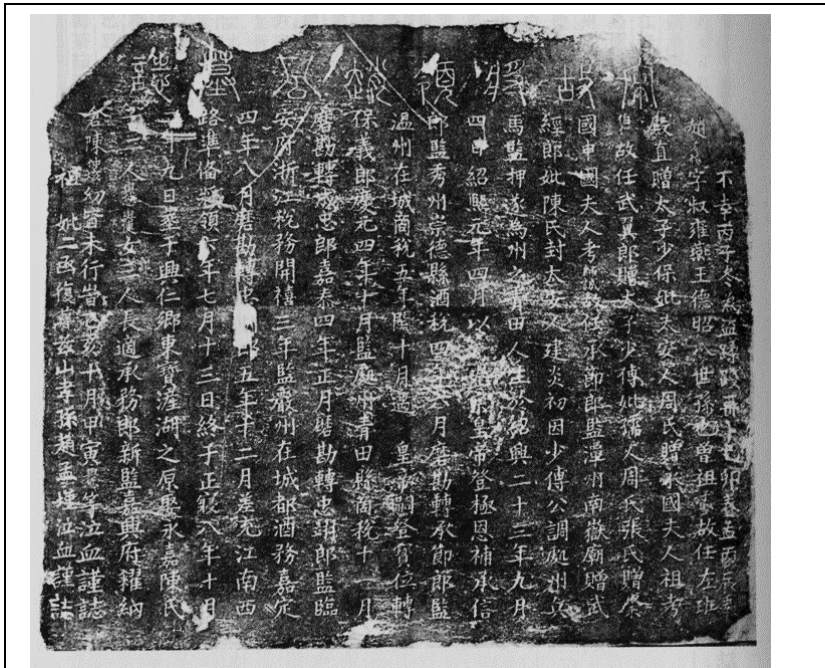 宋故將領趙公墓誌
不幸丙子冬為盜己卯春孟丙辰奉
趙公字叔雍燕王德昭六世孫也曾祖故任左班
殿直贈太子少保妣太安人周氏贈永國夫人祖考
故任武翼郎贈太子少傅妣孺人周氏張氏贈榮
國申國夫人考故任承節郎監潭州南嶽廟贈武
經郎妣陳氏封太安人建炎初因少傅公調處州兵
馬監押遂為州之青田人生於紹興二十三年九月
四日紹熙元年四月以皇帝登極恩補承信
郎監秀州崇德縣酒稅四年六月磨勘轉承節郎監
溫州在城商稅五年閏十月遇 皇帝嗣登寶位轉
保義郎慶元四年十月監處州青田縣商稅十一月
磨勘轉成忠郎嘉泰四年正月磨勘轉忠翊郎監臨
安府浙江稅務開禧三年監嚴州在城都酒務嘉定
四年八月磨勘轉忠訓郎五年十二月差充江南西
路準備將領六年七月十三日終于正寢八年十月
二十九日葬于興仁鄉東寶湖之原娶永嘉陳氏
子三人女三人長適承務郎新監嘉興府糴納
倉陳幼皆未行旹乙亥十月甲寅等泣血謹誌
祖妣二函復窆茲山孝孫趙孟泣血謹誌